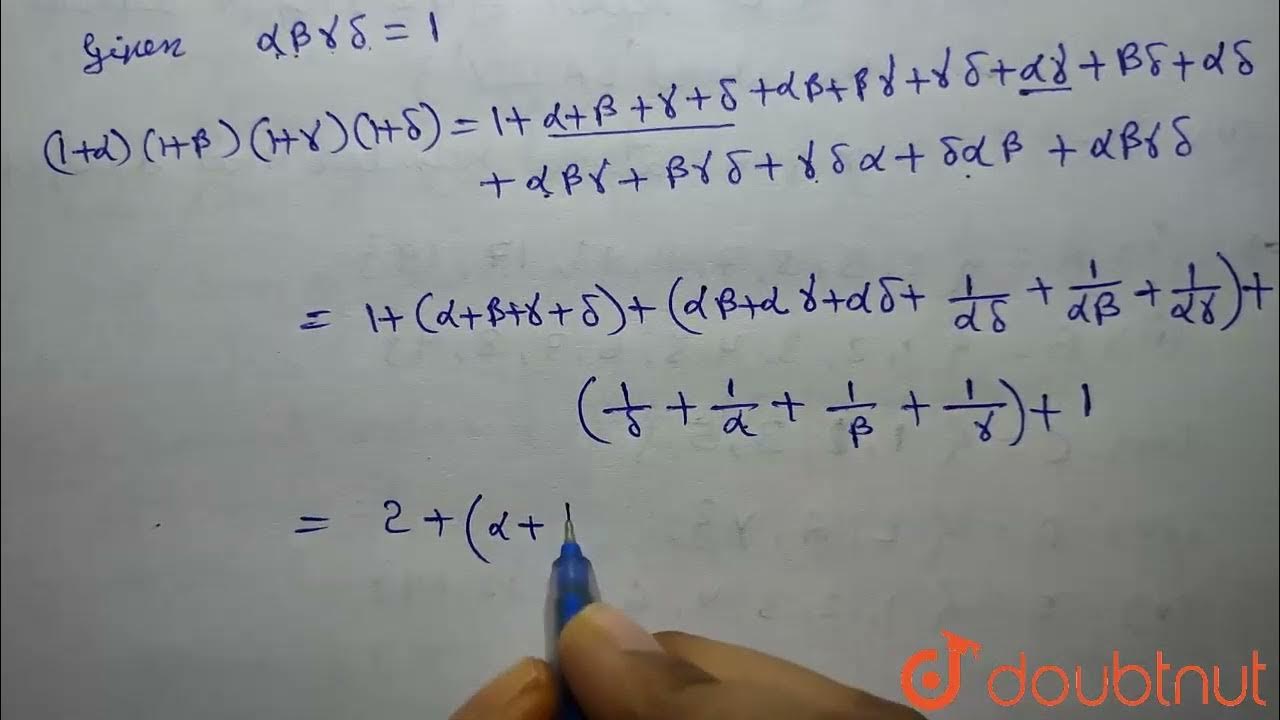 Given αβγδ = 1
(1+α)(1+β)(1+γ)(1+δ) = 1+α+β+γ+δ+αβ+βγ+γδ+αγ+βδ+αδ
+αβγ+βγδ+γδα+δαβ+αβγδ
= 1+(α+β+γ+δ)+(αβ+αγ+αδ+1/αδ+1/αβ+1/αγ)+
(1/δ+1/α+1/β+1/γ)+1
= 2+(α+1
doubtnut